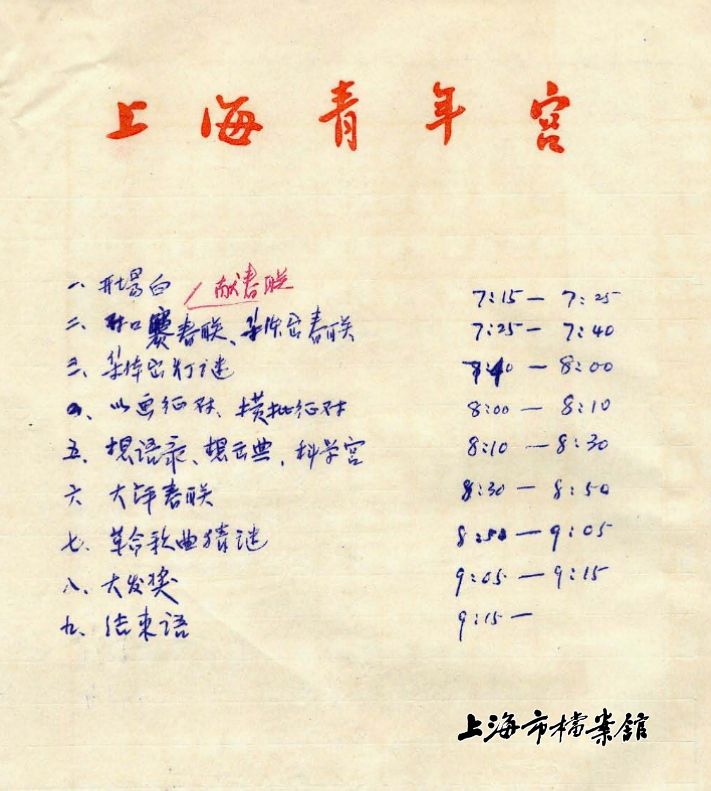 上海青年宫
一、开场白 献春联 7:15 — 7:25
二、对口赛春联、集体写春联 7:25 — 7:40
三、集体写灯谜 7:40 — 8:00
四、以画征对、横批征对 8:00 — 8:10
五、想语录、想出典、科学宫 8:10 — 8:30
六 大评春联 8:30 — 8:50
七、革命歌曲猜谜 8:50 — 9:05
八、大发奖 9:05 — 9:15
九、结束语 9:15 —
上海市檔案館